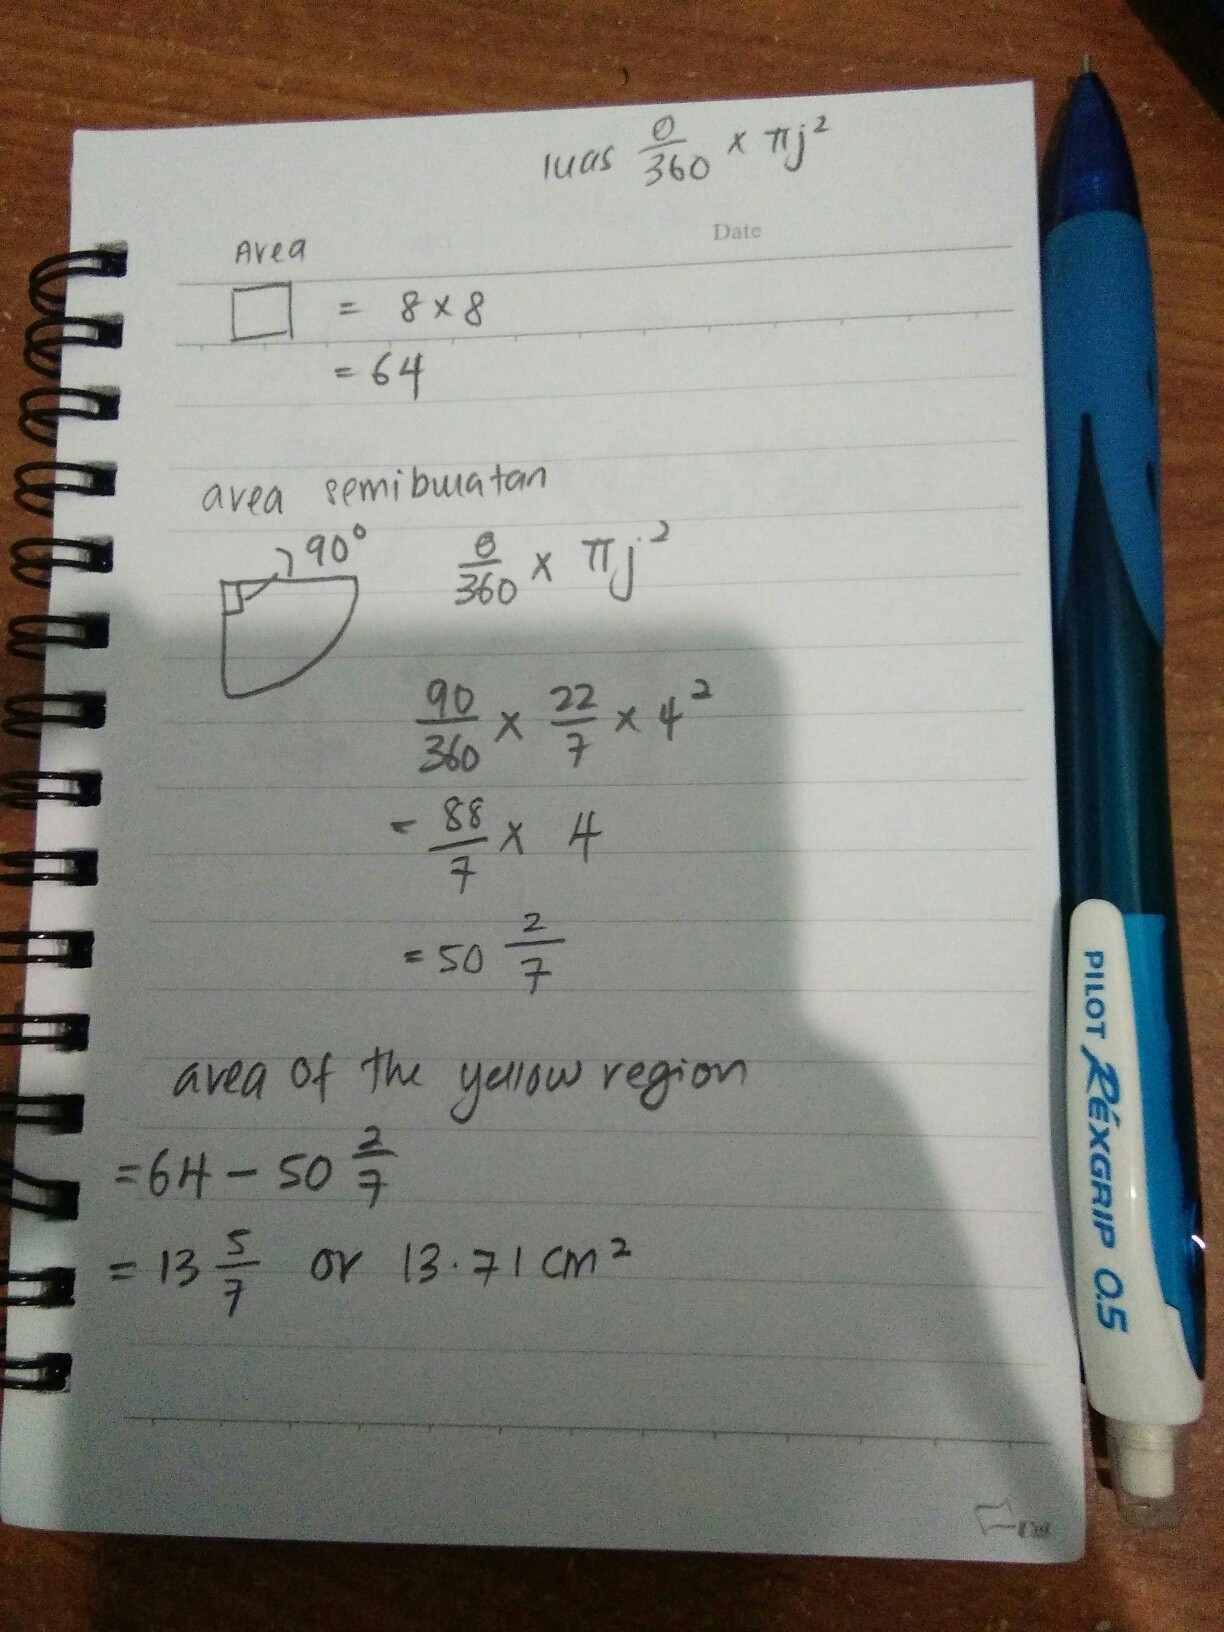 luas θ/360 × πj²
Date
Area
□ = 8 × 8
= 64
area semibulatan
90° θ/360 × πj²
90/360 × 22/7 × 4²
= 88/7 × 4
= 50 2/7
area of the yellow region
= 64 - 50 2/7
= 13 5/7 or 13.71 cm²
PILOT RÉXGRIP 0.5